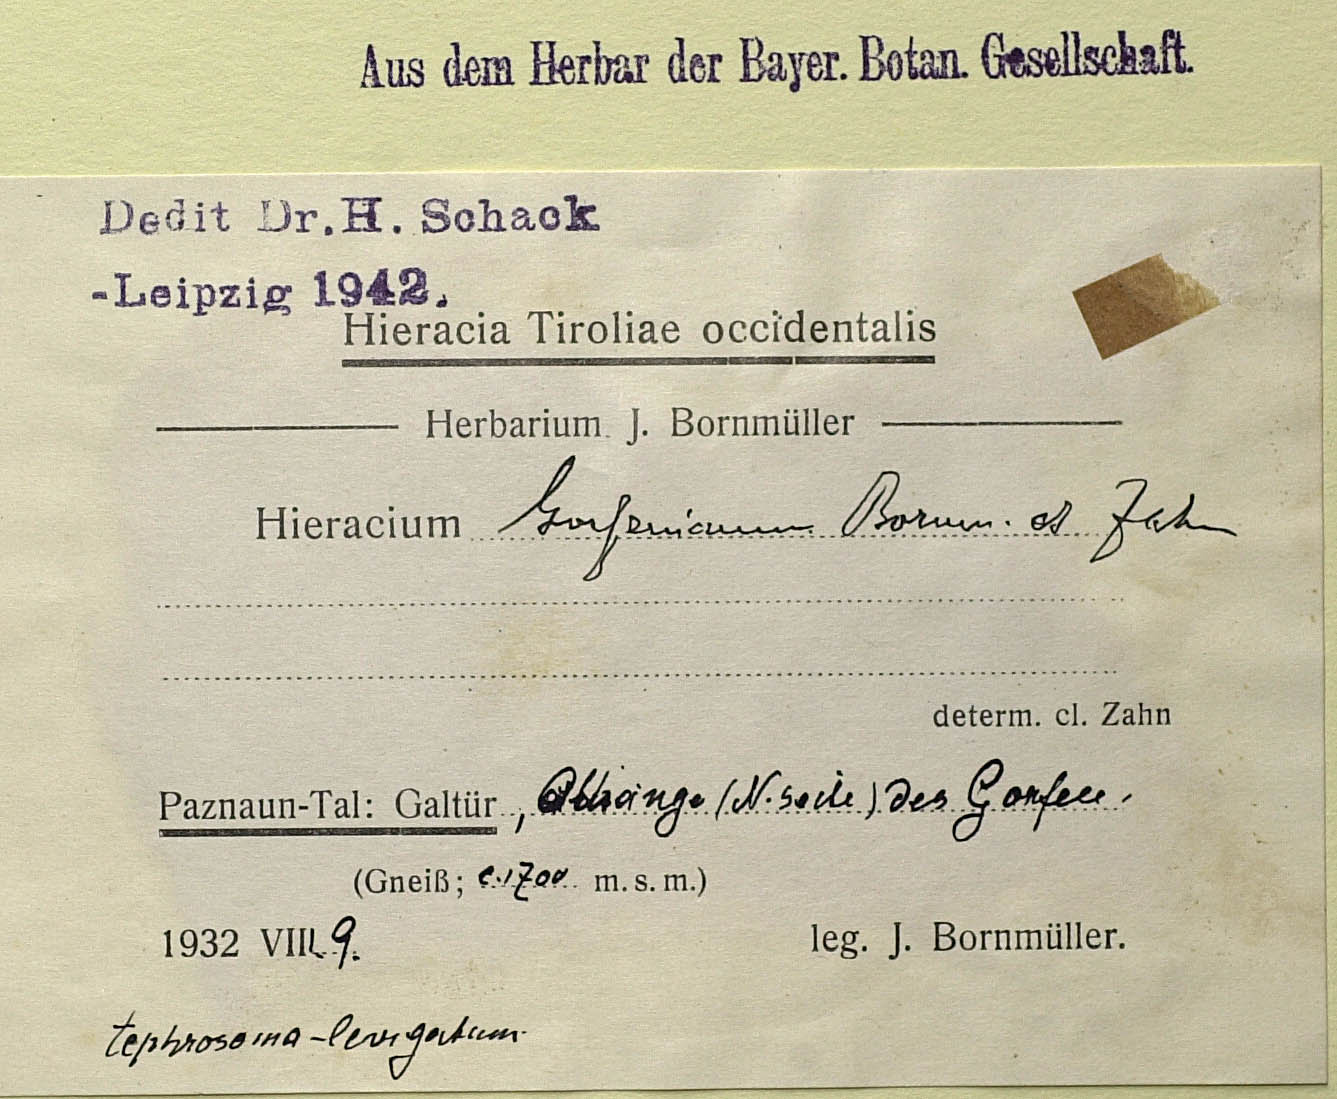 Aus dem Herbar der Bayer. Botan. Gesellschaft.
Dedit Dr. H. Schack
-Leipzig 1942.
Hieracia Tiroliae occidentalis
Herbarium J. Bornmüller
Hieracium Gorfenianum Bornm. et Zahn
determ. cl. Zahn
Paznaun-Tal: Galtür, Abhänge (N.seite) des Gorfen.
(Gneiß; c. 1700 m. s. m.)
1932 VIII. 9.
leg. J. Bornmüller.
tephrosoma-levigatum